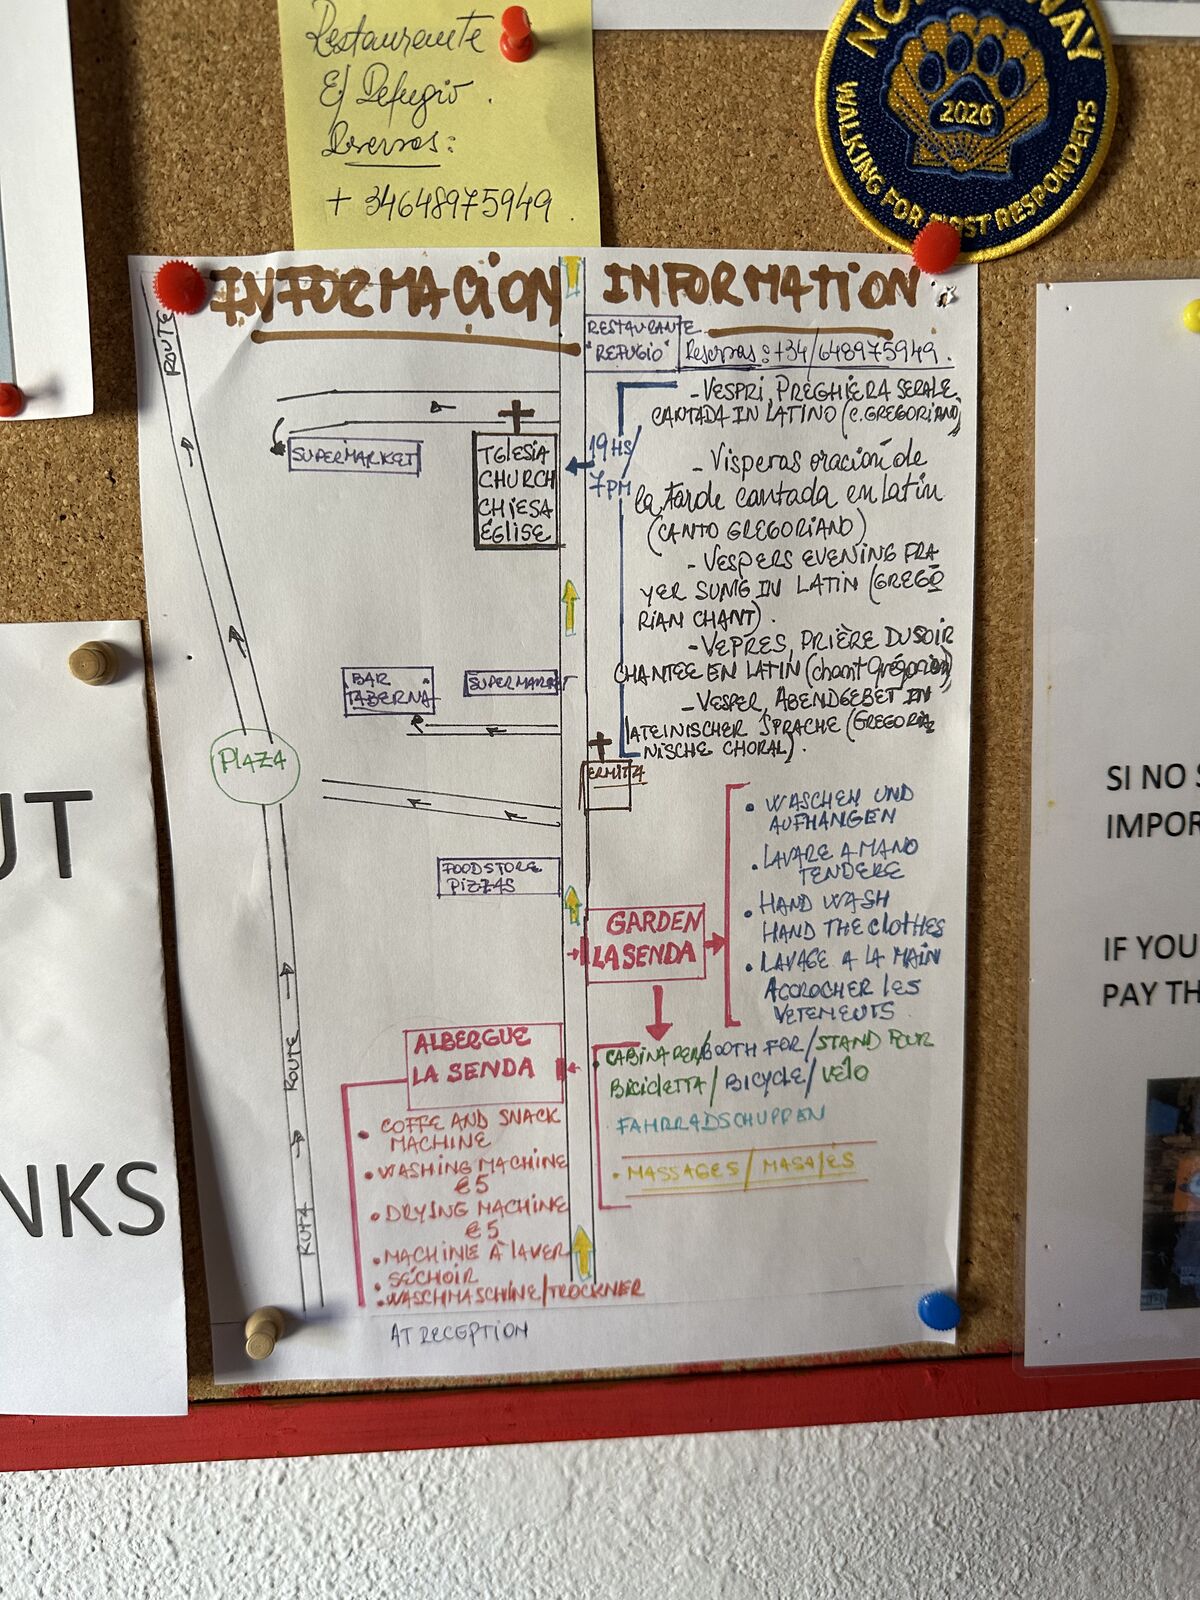 Restaurante
El Refugio.
Reservas:
+ 34648975949.
NO
WAY
2026
WALKING FOR FIRST RESPONDERS
INFORMACION
INFORMATION
RESTAURANTE
"REFUGIO"
Reservas: +34/648975949.
ROUTE
SUPERMARKET
IGLESIA
CHURCH
CHIESA
ÉGLISE
19 HS/
7PM
- VESPRI, PREGHIERA SERALE
CANTADA IN LATINO (C. GREGORIANO)
- VISPERAS ORACIÓN DE
la tarde cantada en latin
(CANTO GREGORIANO)
- VESPERS EVENING PRA
YER SUNG IN LATIN (GREGO
RIAN CHANT).
- VEPRES, PRIÈRE DU SOIR
CHANTEE EN LATIN (chant grégorien)
- VESPER, ABENDGEBET IN
LATEINISCHER SPRACHE (GREGORIA
NISCHE CHORAL).
BAR
TABERNA
SUPERMARKET
PLAZA
ERMITA
FOODSTORE
PIZZAS
GARDEN
LA SENDA
• WASCHEN UND
AUFHANGEN
• LAVARE A MANO
TENDERE
• HAND WASH
HAND THE CLOTHES
• LAVAGE A LA MAIN
ACCROCHER LES
VETEMENTS
ALBERGUE
LA SENDA
• COFFE AND SNACK
MACHINE
• WASHING MACHINE
€5
• DRYING MACHINE
€5
• MACHINE À LAVER
• SÉCHOIR
• WASCHMASCHINE/TROCKNER
AT RECEPTION
• CABINA PER/BOOTH FOR/STAND POUR
BICICLETTA/BICYCLE/VÉLO
FAHRRADSCHUPPEN
• MASSAGES/MASAJES
ROUTE
RUTA
UT
NKS
SI NO S
IMPOR
IF YOU
PAY TH